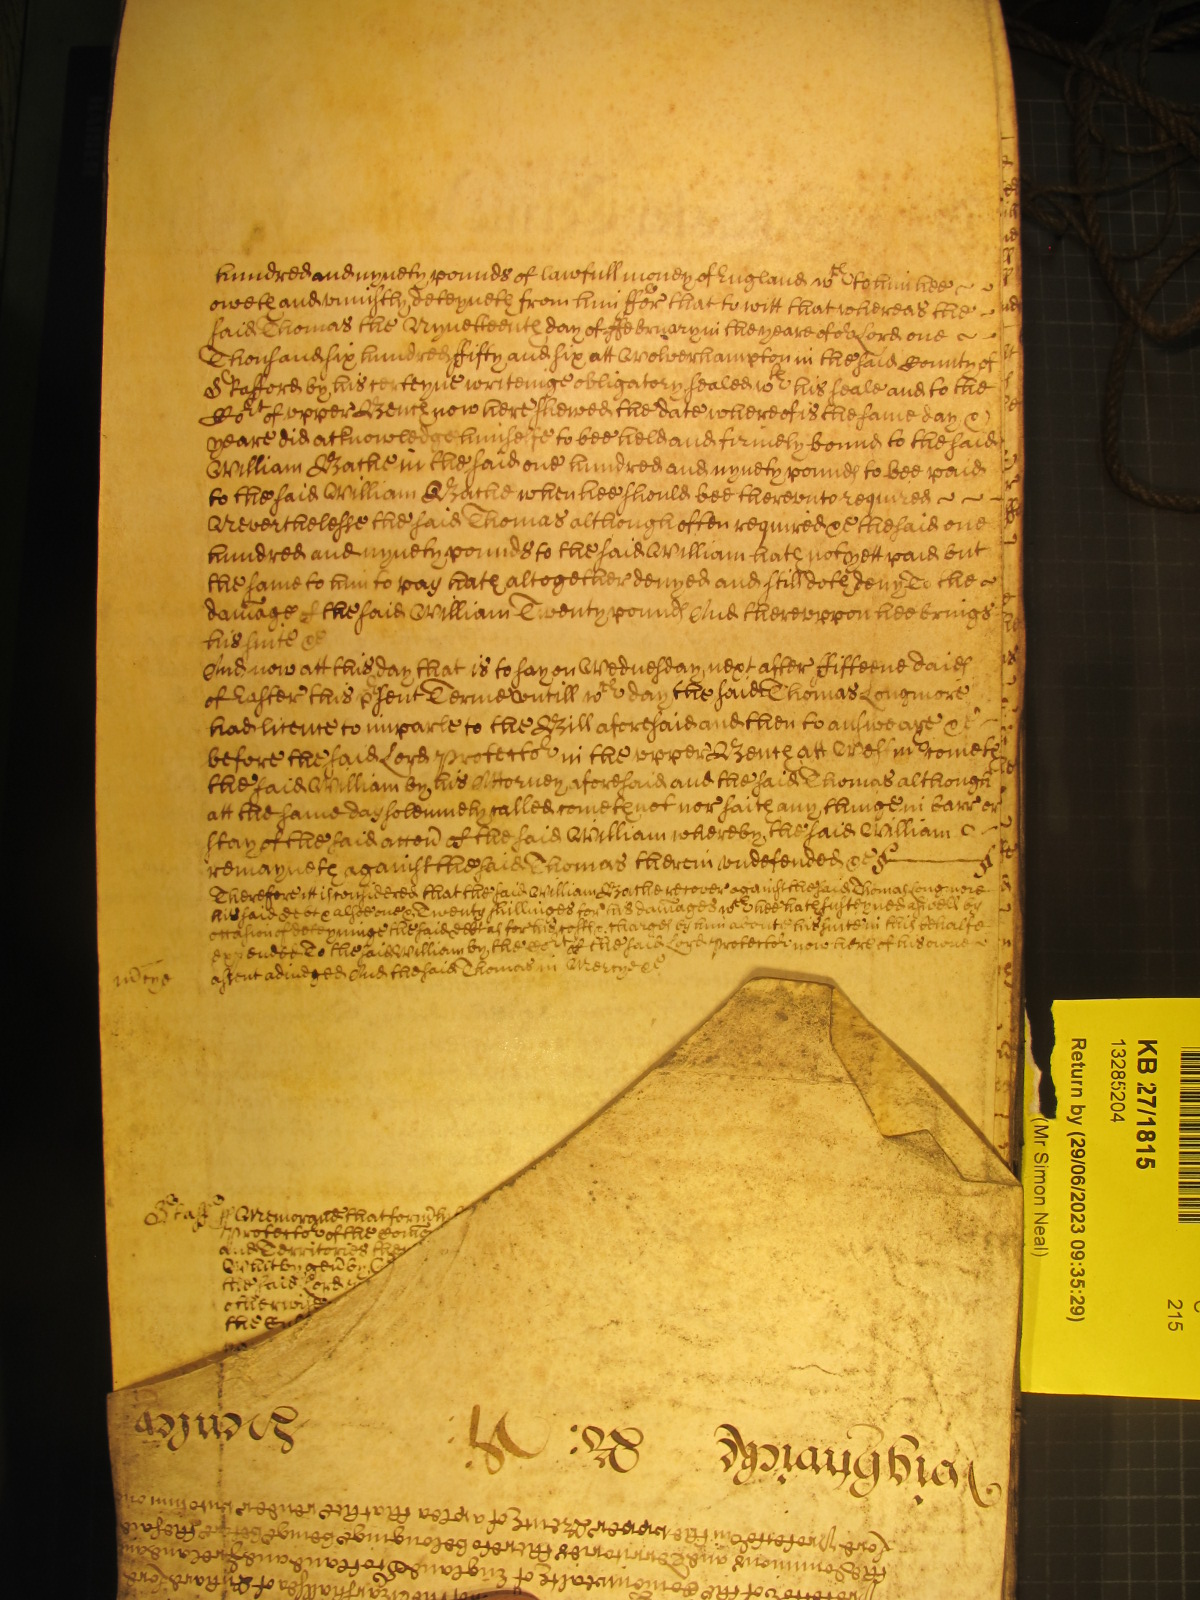 hundred and nynety pounds of lawfull money of England wch to him hee
oweth and uniustly deteyneth from him ffor that to witt that whereas the
said Thomas the Nyneteenth day of ffebruary in the yeare of or Lord one
Thousand six hundred ffifty and six att Wolverhampton in the said County of
Stafford by his certeyne writeinge obligatory sealed wth his seale and to the
Cort of upper Bench now here shewed the date whereof is the same day &
yeare did acknowledge himselfe to bee held and firmely bound to the said
William Bathe in the said one hundred and nynety pounds to bee paid
to the said William Bathe when hee should bee thereunto required
Neverthelesse the said Thomas although often required &c the said one
hundred and nynety pounds to the said William hath not yett paid but
the same to him to pay hath altogether denyed and still doth deny To the
damage of the said William Twenty pounds And thereuppon hee brings
his suite &c
And now att this day that is to say on Wednesday next after ffifteene daies
of Easter this psent Terme untill wch day the said Thomas Longmore
had licence to imparle to the Bill aforesaid and then to answeare &c
before the said Lord Protector in the upper Bench att Westm cometh
the said William by his Attorney aforesaid and the said Thomas although
att the same day solemnely called cometh not nor saith any thinge in barr or
stay of the said accon of the said William whereby the said William
remayneth against the said Thomas therein undefended &c
Therefore it is considered that the said William Bathe recover against the said Thomas Longmore
his said debt & alsoe Twenty shillinges for his damages wch hee hath susteyned aswell by
occasion of deteyninge the said debt as for his costs & charges by him about his suite in this behalfe
expended To the said William by the Cort of the said Lord Protector now here of his owne
mcye assent adiudged And the said Thomas in Mercye &c
Staff ss Memorand that form
Protector of the Com
and Territories ther
Whitby gen by
the said Lord
otherwise
the
Wightwicke R: W: Pemb
Lord Protector in the upper Bench of a plea that hee render unto him one
the dominions and Territories thereto belonging being before the said
Protector of the Comonwealth of England Scotland and Ireland and
KB 27/1815
13285204
Return by (29/06/2023 09:35:29)
(Mr Simon Neal)
215